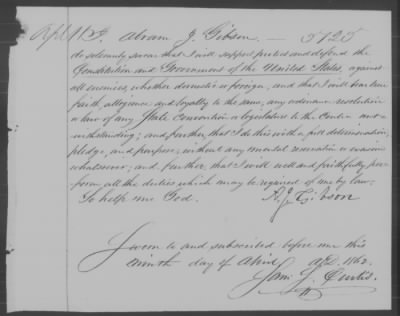 Apl 11 I, Abram J. Gibson. — 5725
do solemnly swear that I will support protect and defend the
Constitution and Government of the United States, against
all enemies, whether domestic or foreign, and that I will bear true
faith, allegiance and loyalty to the same, any ordinance resolution
or law of any State Convention or legislature to the Contra not-
withstanding; and further, that I do this with a full determination,
pledge, and purpose, without any mental reservation or evasion
whatsoever; and, further, that I will well and faithfully per-
form all the duties which may be required of me by law:
So help me God. A. J. Gibson
Sworn to and subscribed before me this
ninth day of April A.D. 1862.
Saml J. Curtis.